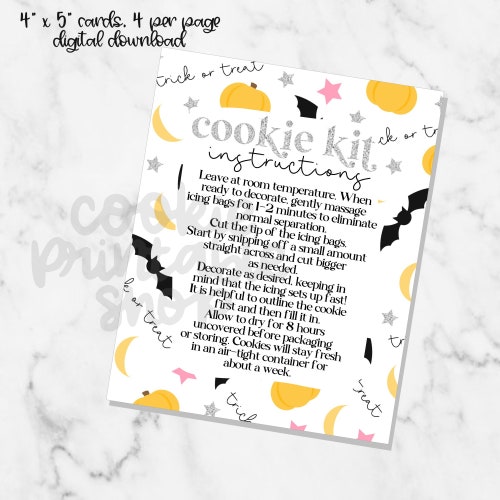 4" x 5" cards, 4 per page
digital download
trick or treat
ck or treat
cookie kit
instructions
Leave at room temperature. When
ready to decorate, gently massage
icing bags for 1-2 minutes to eliminate
normal separation.
Cut the tip of the icing bags.
Start by snipping off a small amount
straight across and cut bigger
as needed.
Decorate as desired, keeping in
mind that the icing sets up fast!
It is helpful to outline the cookie
first and then fill it in.
Allow to dry for 8 hours
uncovered before packaging
or storing. Cookies will stay fresh
in an air-tight container for
about a week.
trick or treat
treat
cookie
printable
shop